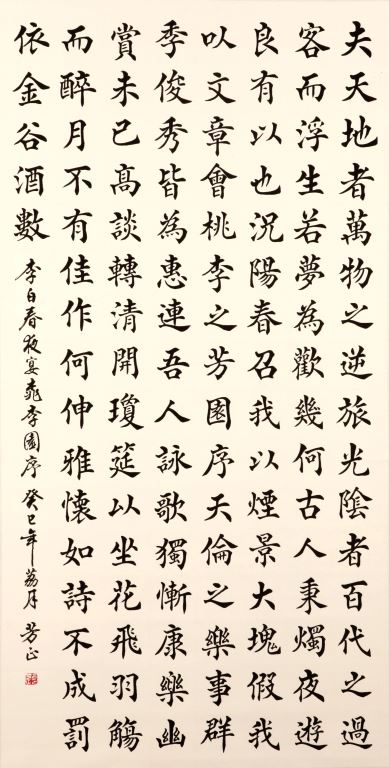 夫天地者萬物之逆旅光陰者百代之過
客而浮生若夢為歡幾何古人秉燭夜遊
良有以也況陽春召我以煙景大塊假我
以文章會桃李之芳園序天倫之樂事群
季俊秀皆為惠連吾人詠歌獨慚康樂幽
賞未已高談轉清開瓊筵以坐花飛羽觴
而醉月不有佳作何伸雅懷如詩不成罰
依金谷酒數
李白春夜宴桃李園序 癸巳年荔月 芳正